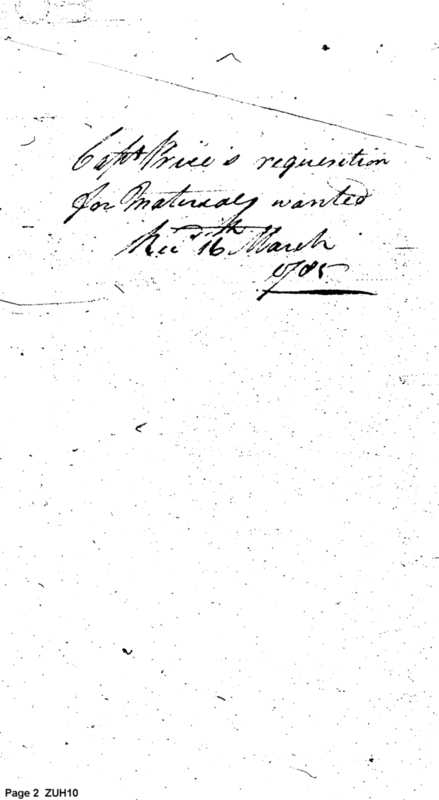 Capt Price's requisition
for Materials wanted
Recd 16th March
1785
Page 2 ZUH10